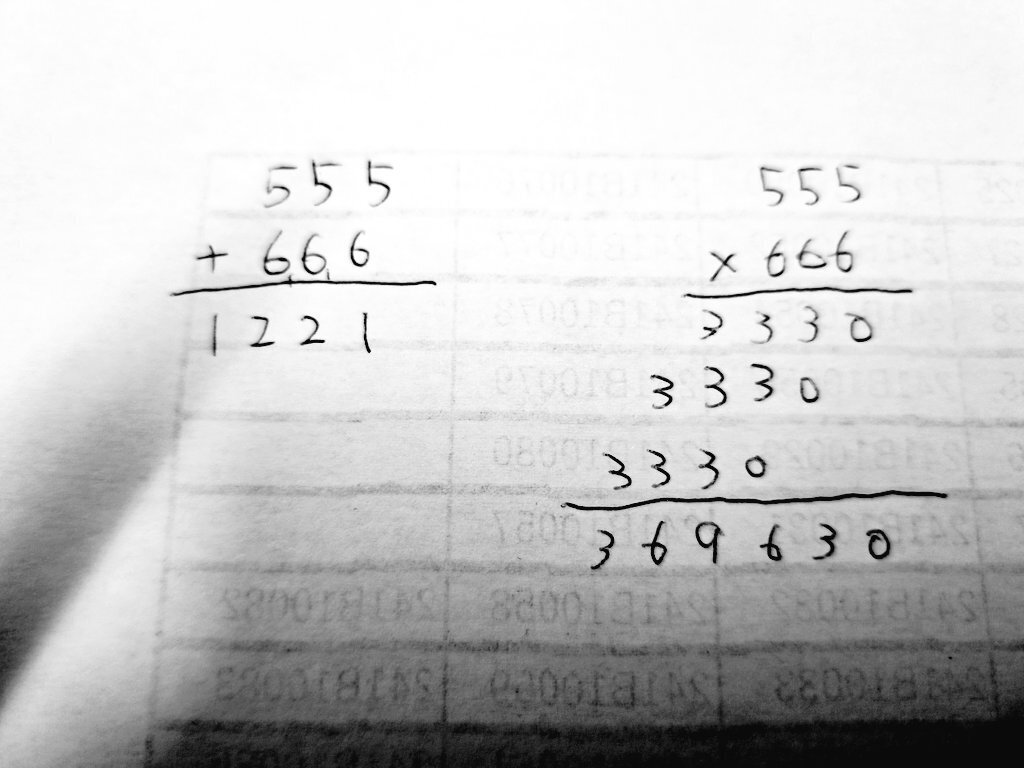 555
+ 666
1221
555
× 666
3330
3330
3330
369630